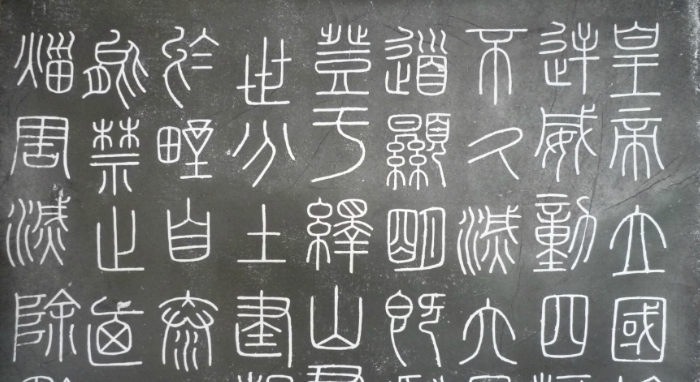 皇帝立國
逆威動四
不久滅六
道顯明既
登于繹山
世分土建
於野自泰
能禁止迺
災害滅除